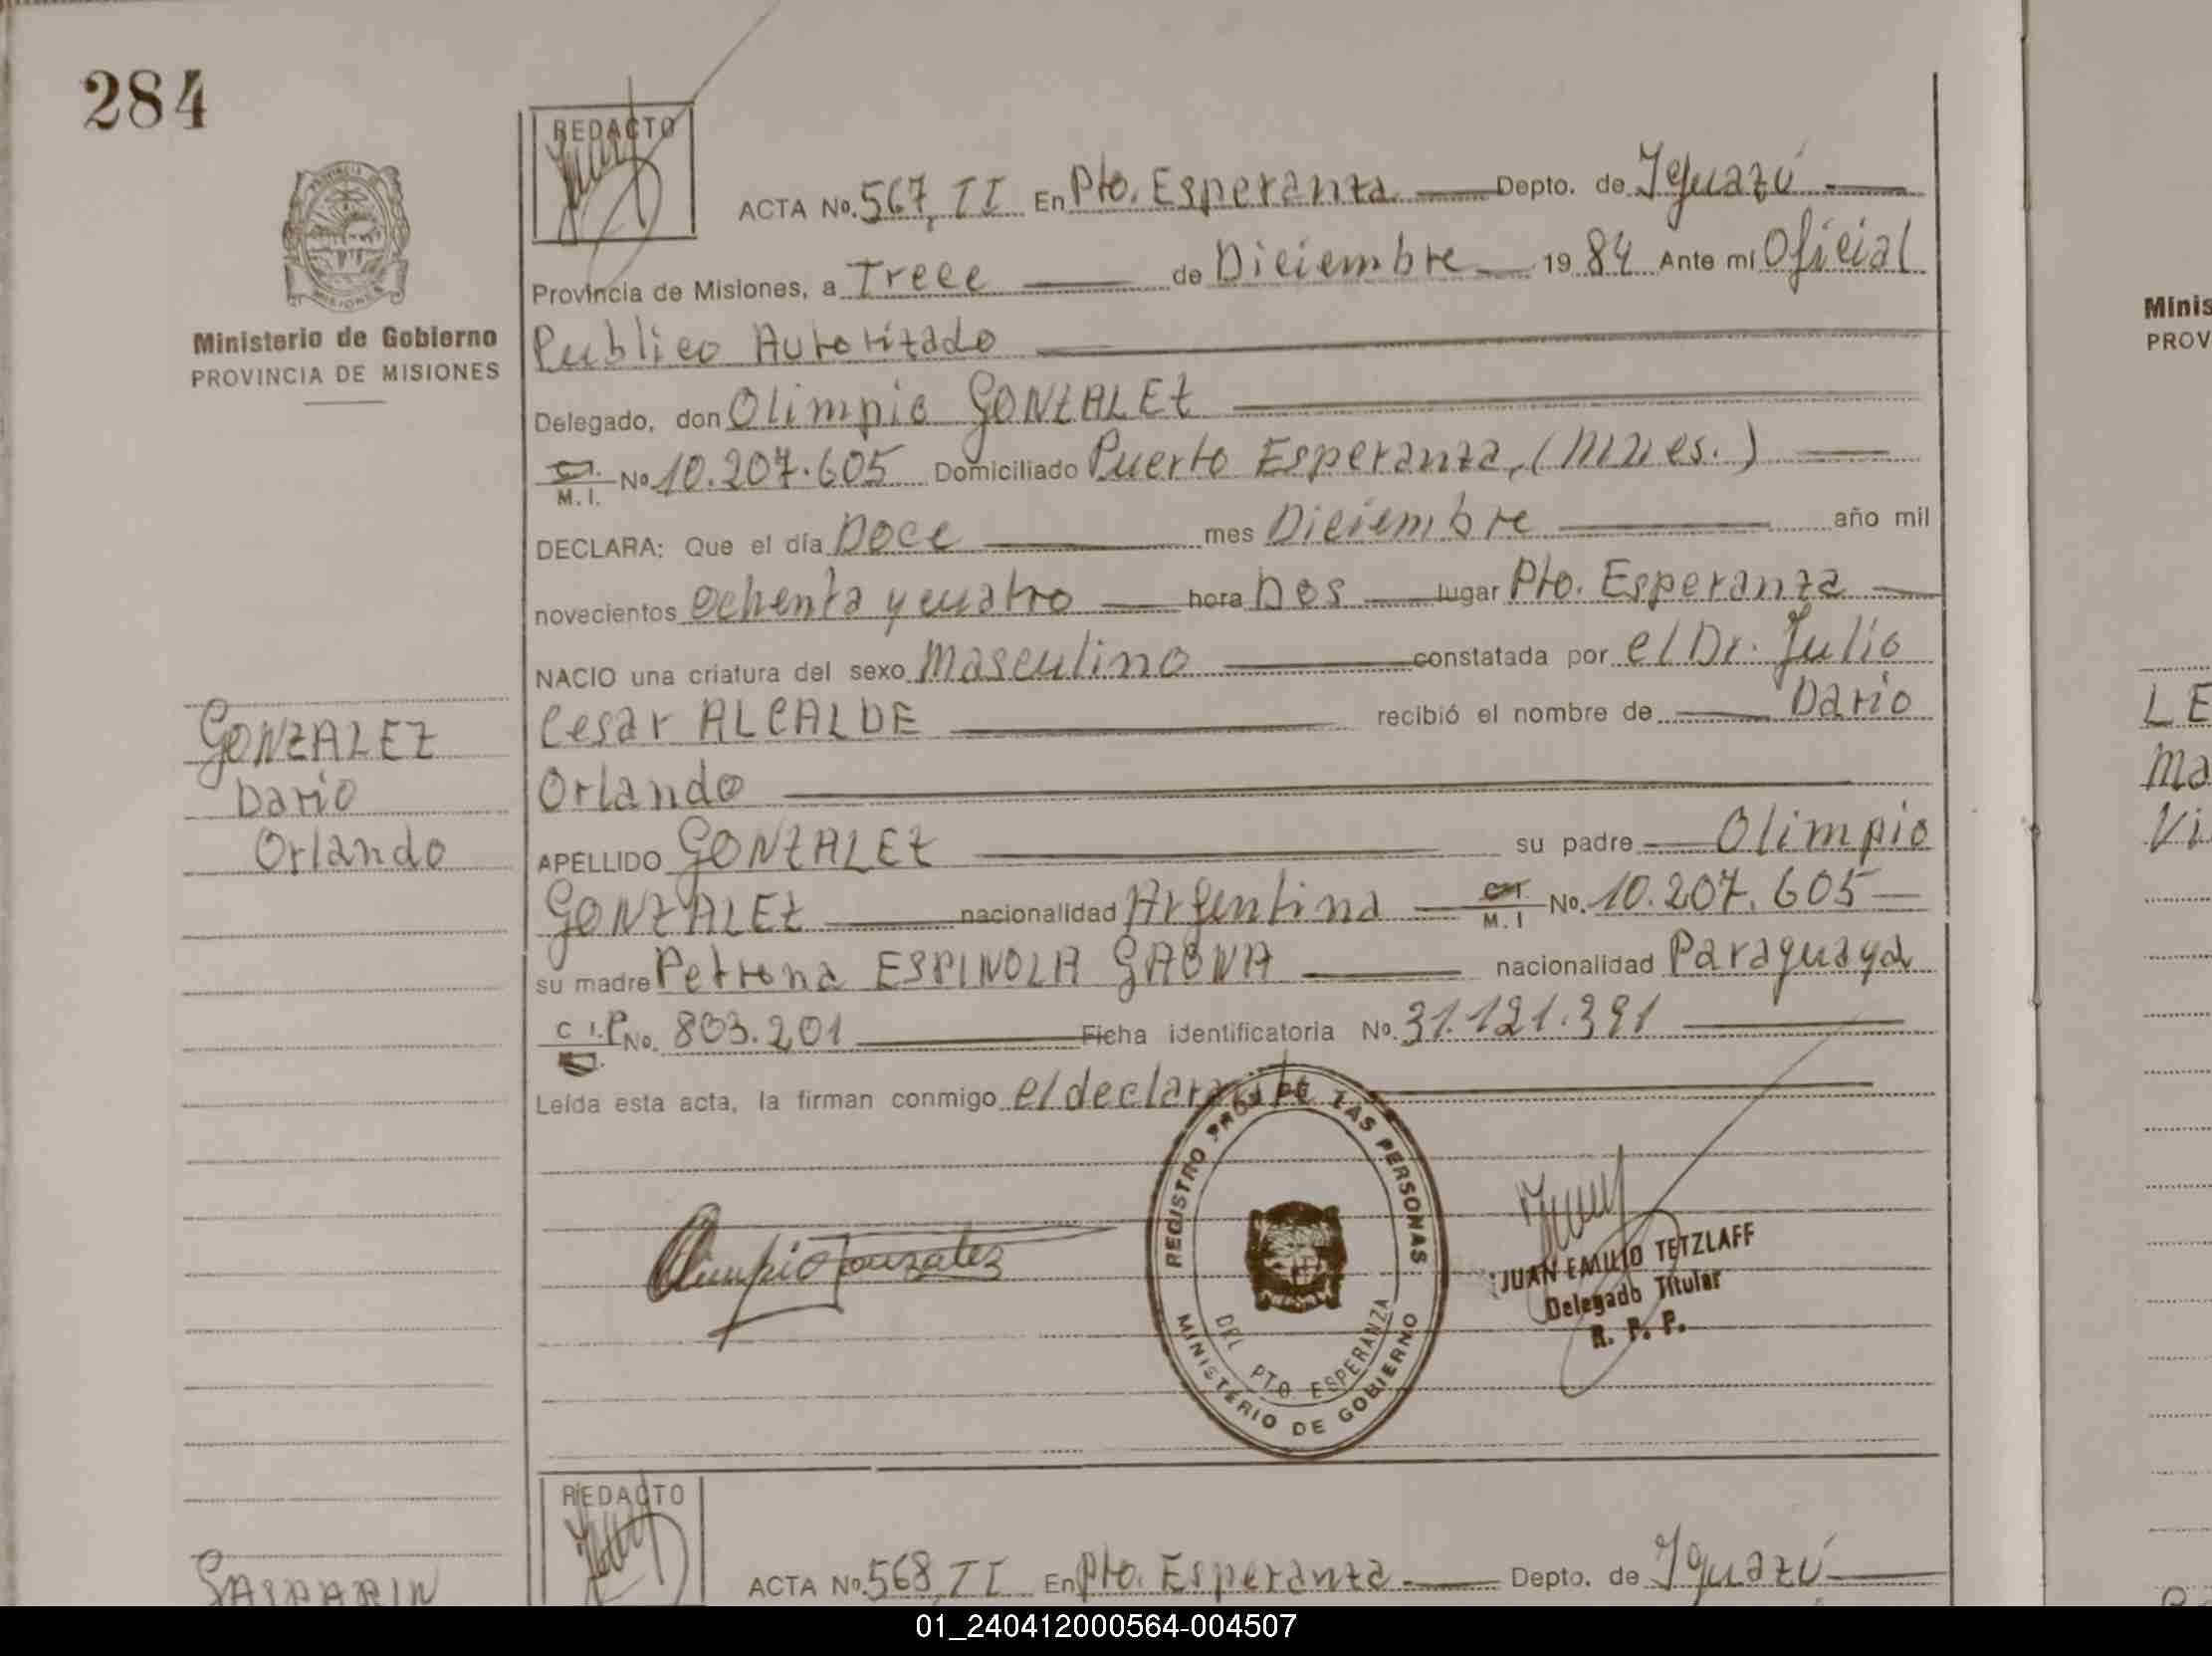 284
REDACTO
ACTA No. 567, II En Pto. Esperanza Depto. de Iguazú
Provincia de Misiones, a Trece de Diciembre 19 84 Ante mí Oficial
Publico Autorizado
Delegado, don Olimpio GONZALEZ
C.I. M.I. No 10.207.605 Domiciliado Puerto Esperanza, (Mnes.)
DECLARA: Que el día Doce mes Diciembre año mil
novecientos ochenta y cuatro hora Dos lugar Pto. Esperanza
NACIO una criatura del sexo Masculino constatada por el Dr. Julio
Cesar ALCALDE recibió el nombre de Dario
Orlando
APELLIDO GONZALEZ su padre Olimpio
GONZALEZ nacionalidad Argentina C.I. M.I No. 10.207.605
su madre Petrona ESPINOLA GAONA nacionalidad Paraguaya
C I.P No. 803.201 Ficha identificatoria No. 31.121.391
Leída esta acta, la firman conmigo el declarante
Olimpio Gonzalez
REGISTRO PROV. DE LAS PERSONAS
MINISTERIO DE GOBIERNO
DEL PTO. ESPERANZA
JUAN EMILIO TETZLAFF
Delegado Titular
R. P. P.
PROVINCIA DE
MISIONES
Ministerio de Gobierno
PROVINCIA DE MISIONES
GONZALEZ
Dario
Orlando
REDACTO
ACTA No. 568, II En Pto. Esperanza Depto. de Iguazú
GASPARIN
Minis
PROV
LE
Ma
Vi
01_240412000564-004507